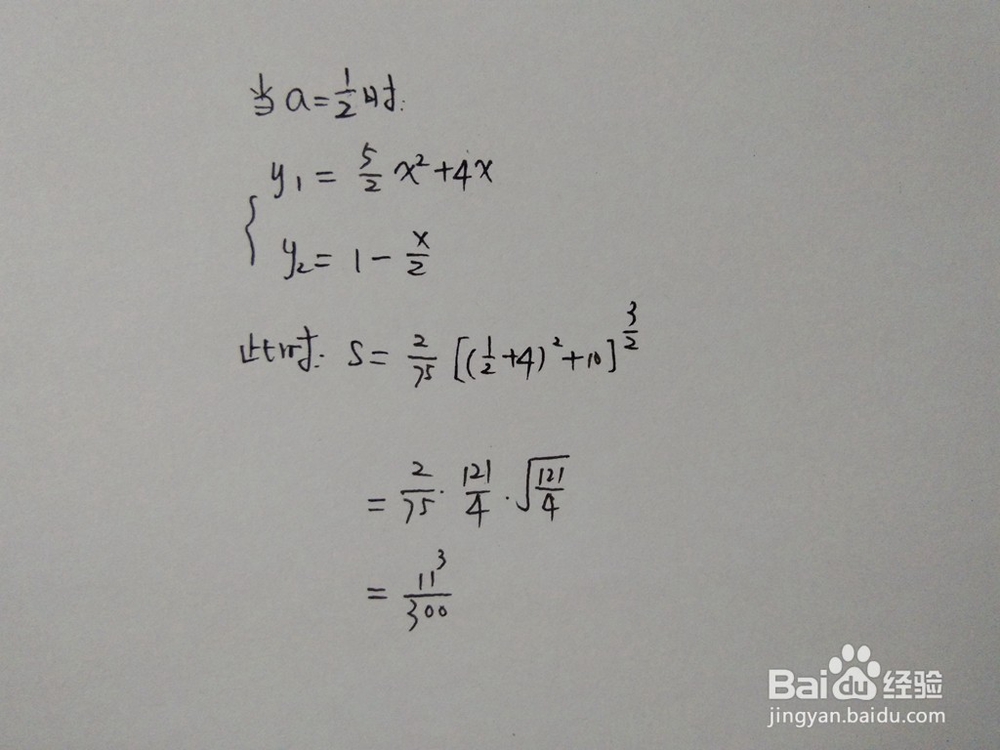 当 a=1/2时:
y₁ = 5/2 x²+4x
{
y₂= 1 - x/2
此时: S= 2/75 [(1/2+4)²+10]^(3/2)
= 2/75 · 121/4 · √(121/4)
= 11³/300
Baidu经验
jingyan.baidu.com